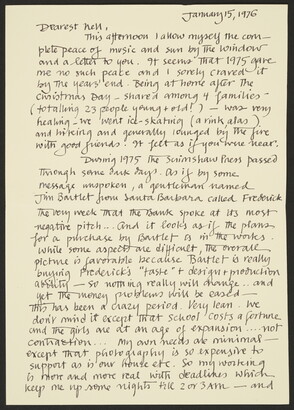 January 15, 1976
Dearest Nell,
This afternoon I allow myself the com-
plete peace of music and sun by the window
and a letter to you. It seems that 1975 gave
me no such peace and I sorely craved it
by the years' end. Being at home after the
Christmas Day - shared among 4 families -
(totalling 23 people young + old!) - was very
healing - we went ice-skating (a rink alas)
and hiking and generally lounged by the fire
with good friends. It felt as if you were near.
During 1975 The Scrimshaw Press passed
through some dark days. As if by some
message unspoken, a gentleman named
Jim Bartlet from Santa Barbara called Frederick
the very week that the Bank spoke at its most
negative pitch... And it looks as if the plans
for a purchase by Bartlet is in the works.
While some aspects are difficult, the overall
picture is favorable because Bartlet is really
buying Frederick's "taste" + design + production
ability - so nothing really will change... and
yet the money problems will be eased -
This has been a crazy period. Very lean. We
don't mind it except that school costs a fortune
and the girls are at an age of expansion.... not
contraction... My own needs are minimal -
except that photography is so expensive to
support as is our house etc. So my working
is more and more real with deadlines which
keep me up some nights till 2 or 3 AM - and